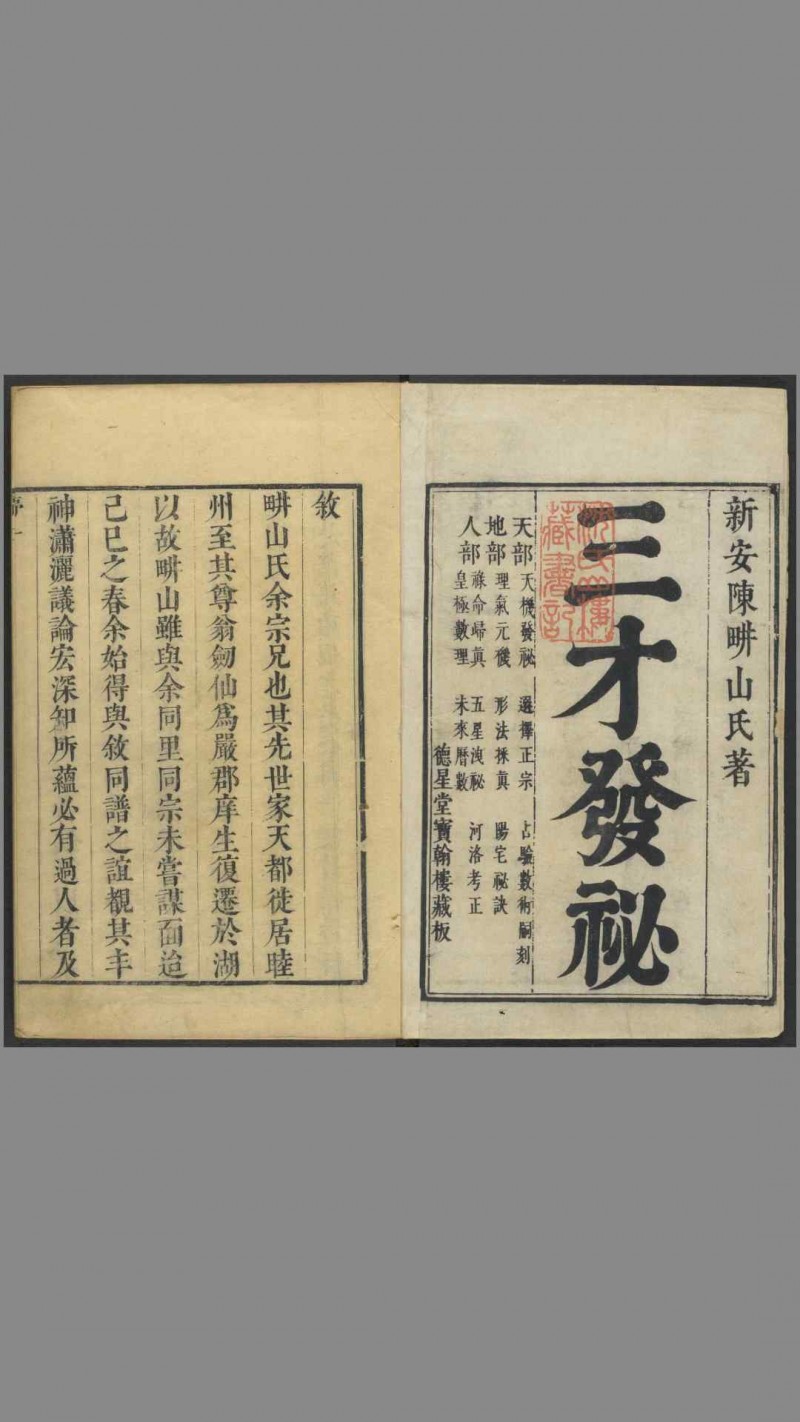 新安陳畊山氏著
三才發祕
天部 天機發祕 選擇正宗 占驗數術嗣刻
地部 理氣元機 形法採真 陽宅祕訣
人部 祿命歸真 五星洩祕 河洛考正
皇極數理 未來曆數
德星堂寶翰樓藏板
藏書記
敘
畊山氏余宗兄也其先世家天都徙居睦
州至其尊翁劒仙爲嚴郡庠生復遷於湖
以故畊山雖與余同里同宗未嘗謀面迨
己巳之春余始得與敘同譜之誼覩其丰
神瀟灑議論宏深知所蘊必有過人者及